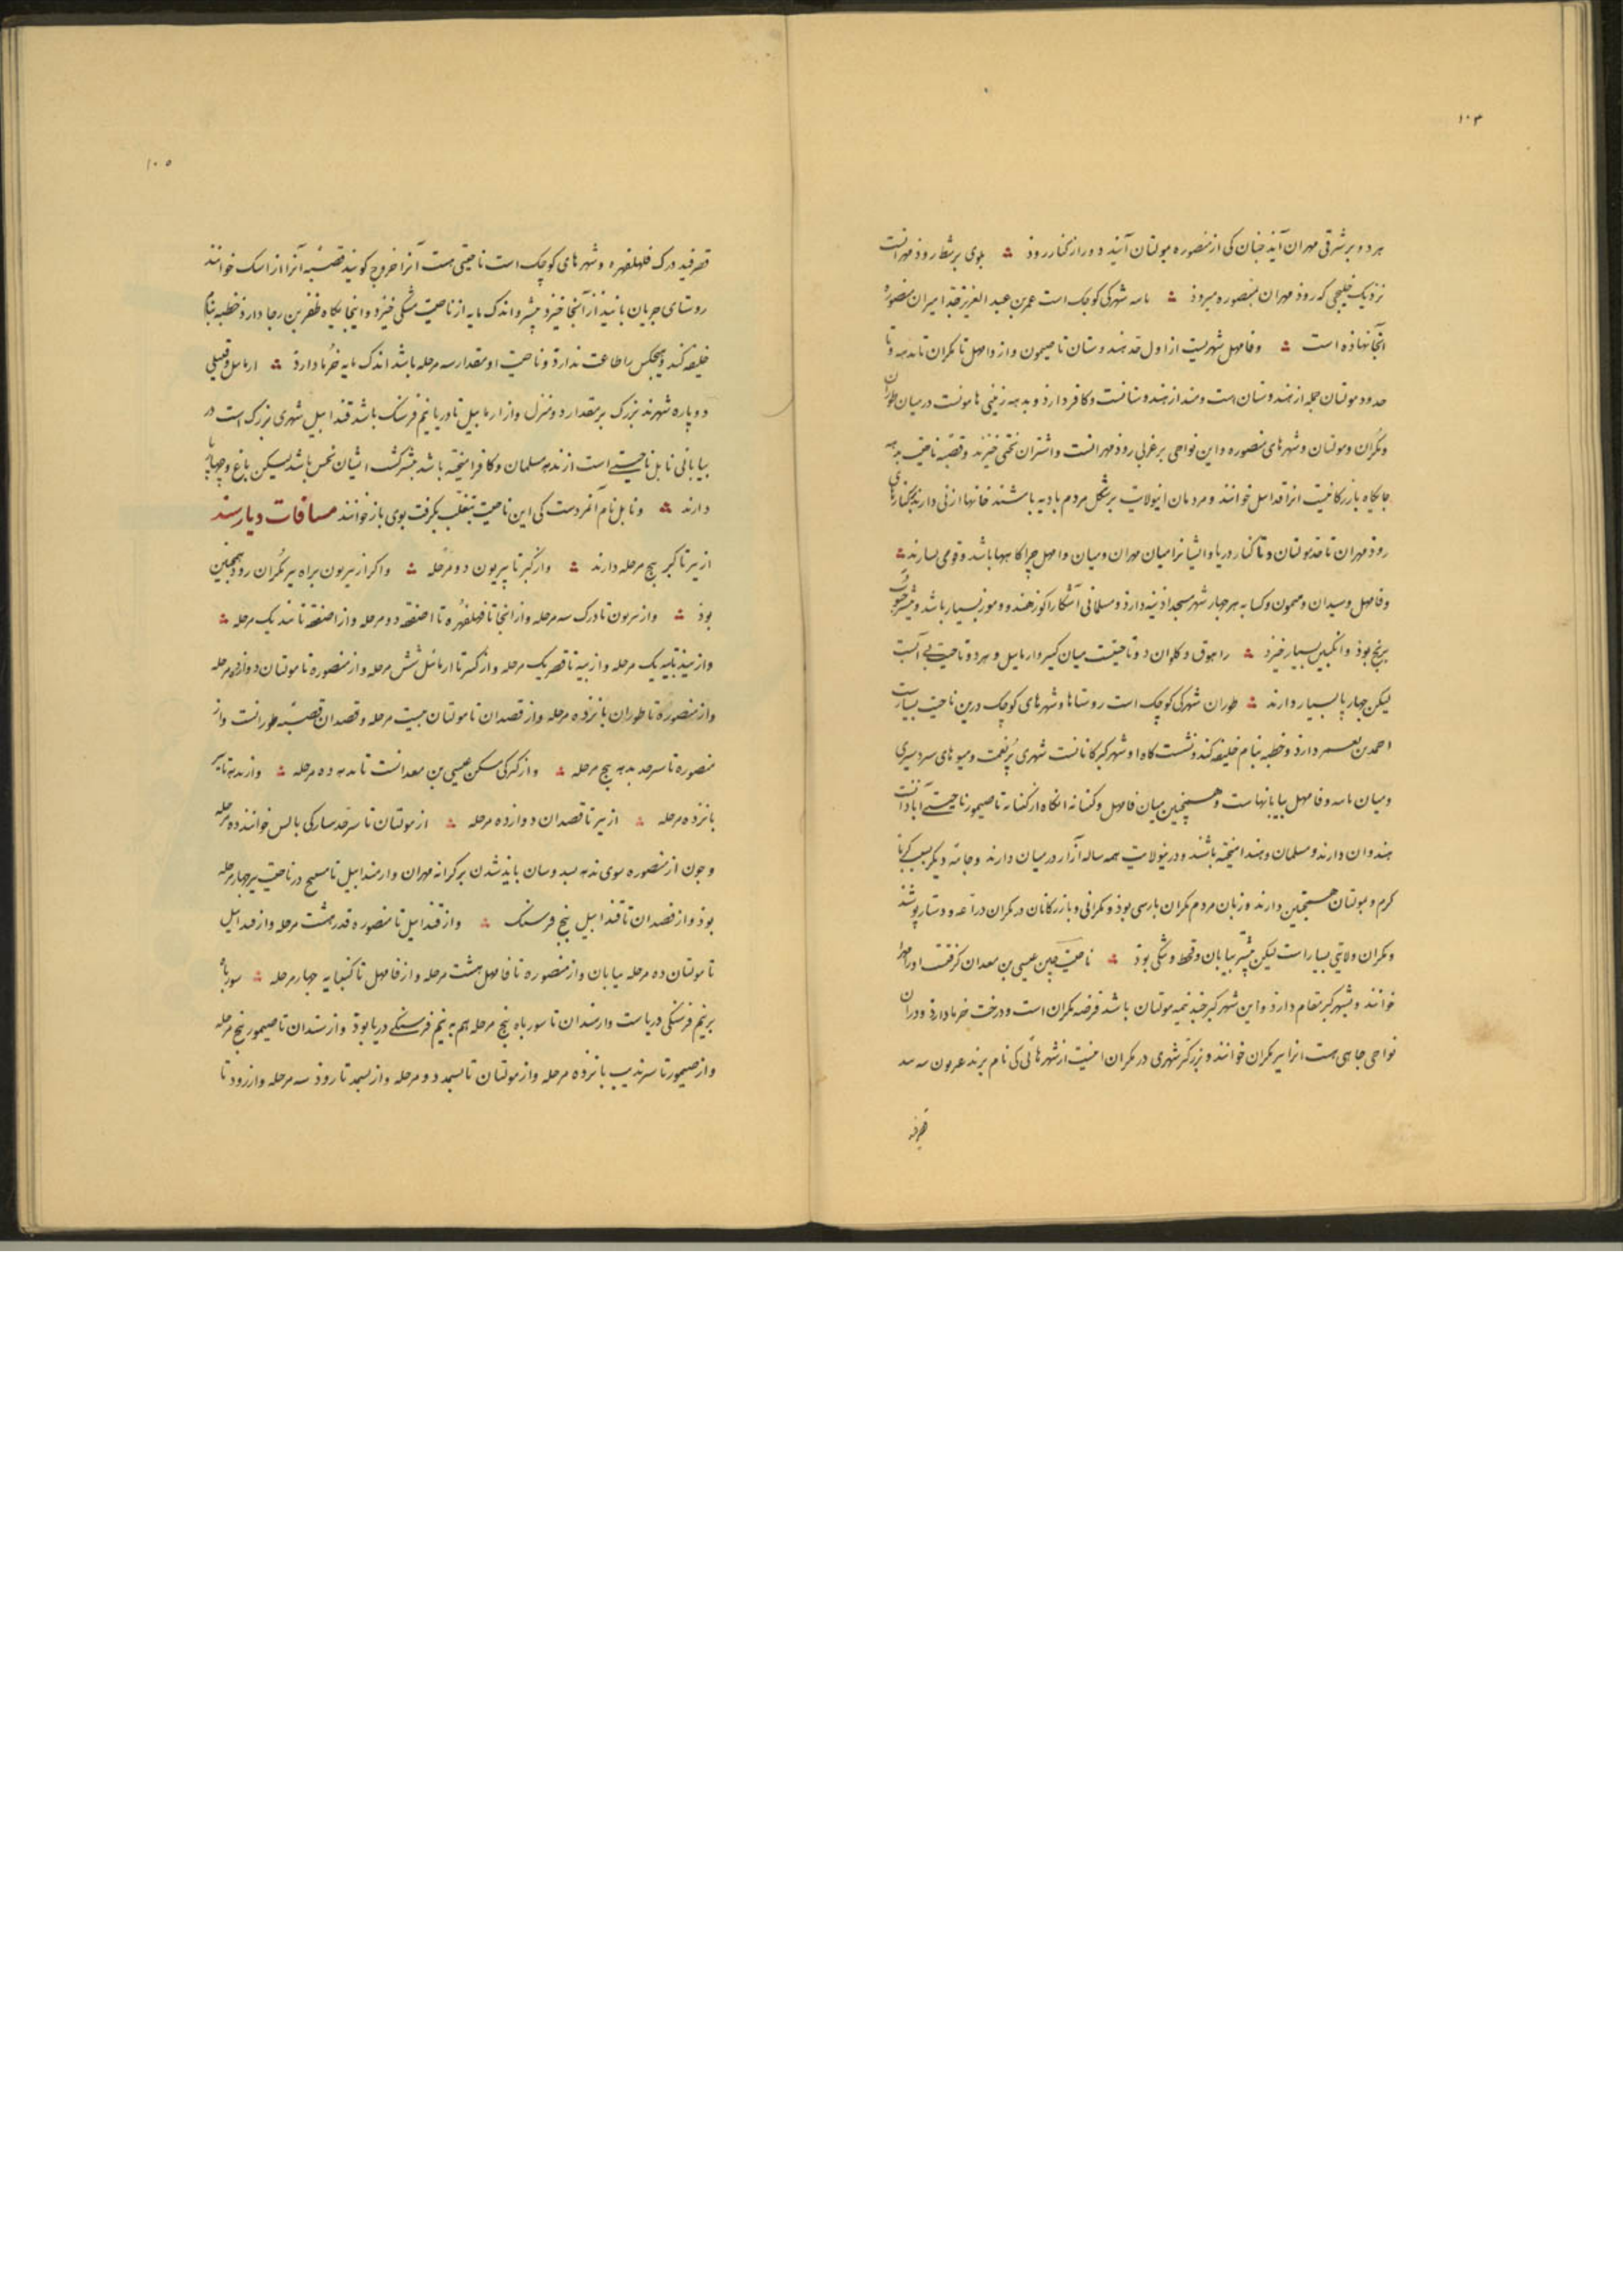 ۱۰۴
هر دو بر شرقی مهران آید چنان کی از منصوره بمولتان آیند دور از کنار روذ ؞ بلوی بر شط روذ مهرانست
نزدیک خلیجی که روذ مهران بمنصوره میروذ ؞ نامه شهرکی کوچک است عمر بن عبد العزیز جد امیران منصوره
آنجا نهاذه است ؞ وفامهل شهریست از اول حد هندوستان تا صیمون واز وامهل تا مکران تا بدهه و تا
حدود مولتان جمله از هندوستان است و کافر دارذ و بدهه زمینی هامونست در میان طوران
ومکران ومولتان وشهرهای منصوره واین نواحی بر غربی روذ مهرانست واشتران بختی خیزند وقصبه ناحیت بدهه
جایگاه بازرگانیست انرا قندابیل خوانند و مردمان این ولایت بر شکل مردم بادیه باشند خانها از نی دارند بکنارهای
روذ مهران تا حد مولتان و تا کنار دریا وایشانرا میان مهران ومیان وامهل چراگاهها باشد وقومی بسارند ؞
وفامهل وسیدان وصیمون وکسایه هر چهار شهر مسجد اذینه دارذ ومسلمانی آشکارا کوز هند و موز بسیار باشد وبیشتر حبوب
برنج بوذ وانگبین بسیار خیزد ؞ راهوق وکلوان دو ناحیتست میان کیز وارمابیل وهر دو ناحیت بی آبست
لیکن چهارپا بسیار دارند ؞ طوران شهرکی کوچک است روستاها وشهرهای کوچک درین ناحیت بسیارست
احمد بن معمر دارذ وخطبه بنام خلیفه کند ونشست گاه او شهر کیزکانانست شهری پر نعمت ومیوهای سردسیری
ومیان نامه وفامهل بیابانهاست وهمچنین میان فامهل وکنبانه انگاه از کنبانه تا صیمور ناحیتی آباذانست
هندوان دارند ومسلمان وهند امیخته باشند ودرین ولایت همه ساله ازار در میان دارند وجامه دیگر بسبب گرما
گرم ومولتان همچنین دارند وزبان مردم مکران پارسی بوذ ومکرانی وبازرگانان در مکران دراعه و دستار پوشند
ومکران ولایتی بسیار است لیکن بیشتر بیابان وقحط وتنگی بوذ ؞ ناحیت چین عیسی بن معدان گرفتست اورا مهرا
خوانند وبشهر کیز مقام دارذ واین شهر کیز چند نیمه مولتان باشد فرضه مکران است ودرخت خرما دارذ ودران
نواحی جاهی هست انرا تیر مکران خوانند وبزرگتر شهری در مکران اینست از شهرهائی کی نام برند
قصرفند
۱۰۵
قصرفند درک فهلفهره وشهرهای کوچک است ناحیتی هست آنرا خروج کویند قصبه آنرا راسک خوانند
روستای جربان پانیذ از آنجا خیزد بیشتر واندک مایه از ناحیت مشکی خیزد واینجایگاه ظفر بن رجا دارذ خطبه بنام
خلیفه کند وهیچکس را طاعت ندارذ وناحیت او مقدار سه مرحله باشد اندک مایه خرما دارذ ؞ ارمابیل وقنبلی
دو پاره شهرند بزرک بر مقدار دو منزل واز ارمابیل تا دریا نیم فرسنک باشد قندابیل شهری بزرک است در
بیابانی نابل ناحیتی است از بدهه مسلمان وکافر امیخته باشد بیشتر کشت ایشان نخس باشد لیکن باغ وچهارپا
دارند ؞ ونابل نام آنمردست کی این ناحیت بتغلب بگرفت بوی باز خوانند مسافات دیار سند
از تیر تا کیز پنج مرحله دارند ؞ واز کیز تا پیربون دو مرحله ؞ واکر از تیربون براه تیر مکران رود همچنین
بوذ ؞ واز پربون تا درک سه مرحله واز اینجا تا فهلفهره تا اصفقه دو مرحله واز اصفقه تا بند یک مرحله ؞
واز بند تا به یک مرحله واز به تا قصر یک مرحله واز کیز تا ارمابیل شش مرحله واز منصوره تا مولتان دوازده مرحله
واز منصوره تا طوران پانزده مرحله واز قصدان تا مولتان بیست مرحله وقصدان قصبه طورانست واز
منصوره تا سرحد بدهه پنج مرحله ؞ واز کیز کی مسکن عیسی بن معدانست تا بدهه ده مرحله ؞ واز بدهه تا تیر
پانزده مرحله ؞ از تیر تا قصدان دوازده مرحله ؞ از مولتان تا سرحد سارکی بالس خوانند ده مرحله
وچون از منصوره سوی بدهه بسدوسان بایذ شدن بر کرانه مهران واز قندابیل تا مسیح در ناحیت تیر چهار مرحله
بوذ واز قصدان تا قندابیل پنج فرسنک ؞ واز قندابیل تا منصوره قدر هشت مرحله واز قندابیل
تا مولتان ده مرحله بیابان واز منصوره تا فامهل هشت مرحله واز فامهل تا کنبایه چهار مرحله ؞ سورباه
بر نیم فرسنکی دریاست واز سندان تا سورباه پنج مرحله هم به نیم فرسنکی دریا بوذ واز سندان تا صیمور پنج مرحله
واز صیمور تا سرندیب پانزده مرحله واز مولتان تا بسمد دو مرحله واز بسمد تا روذ سه مرحله واز روذ تا